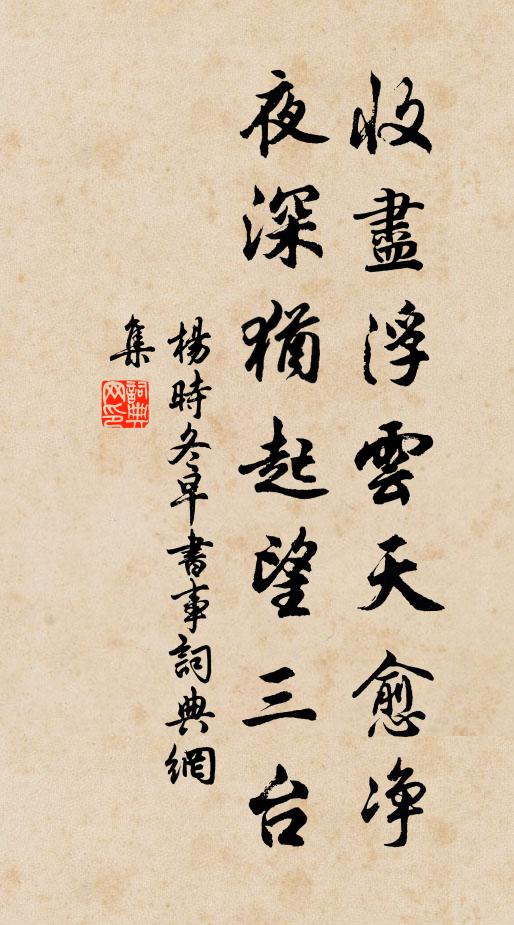 收盡浮雲天愈净
夜深猶起望三台
楊時冬早書事詞典網
集
詞典網印